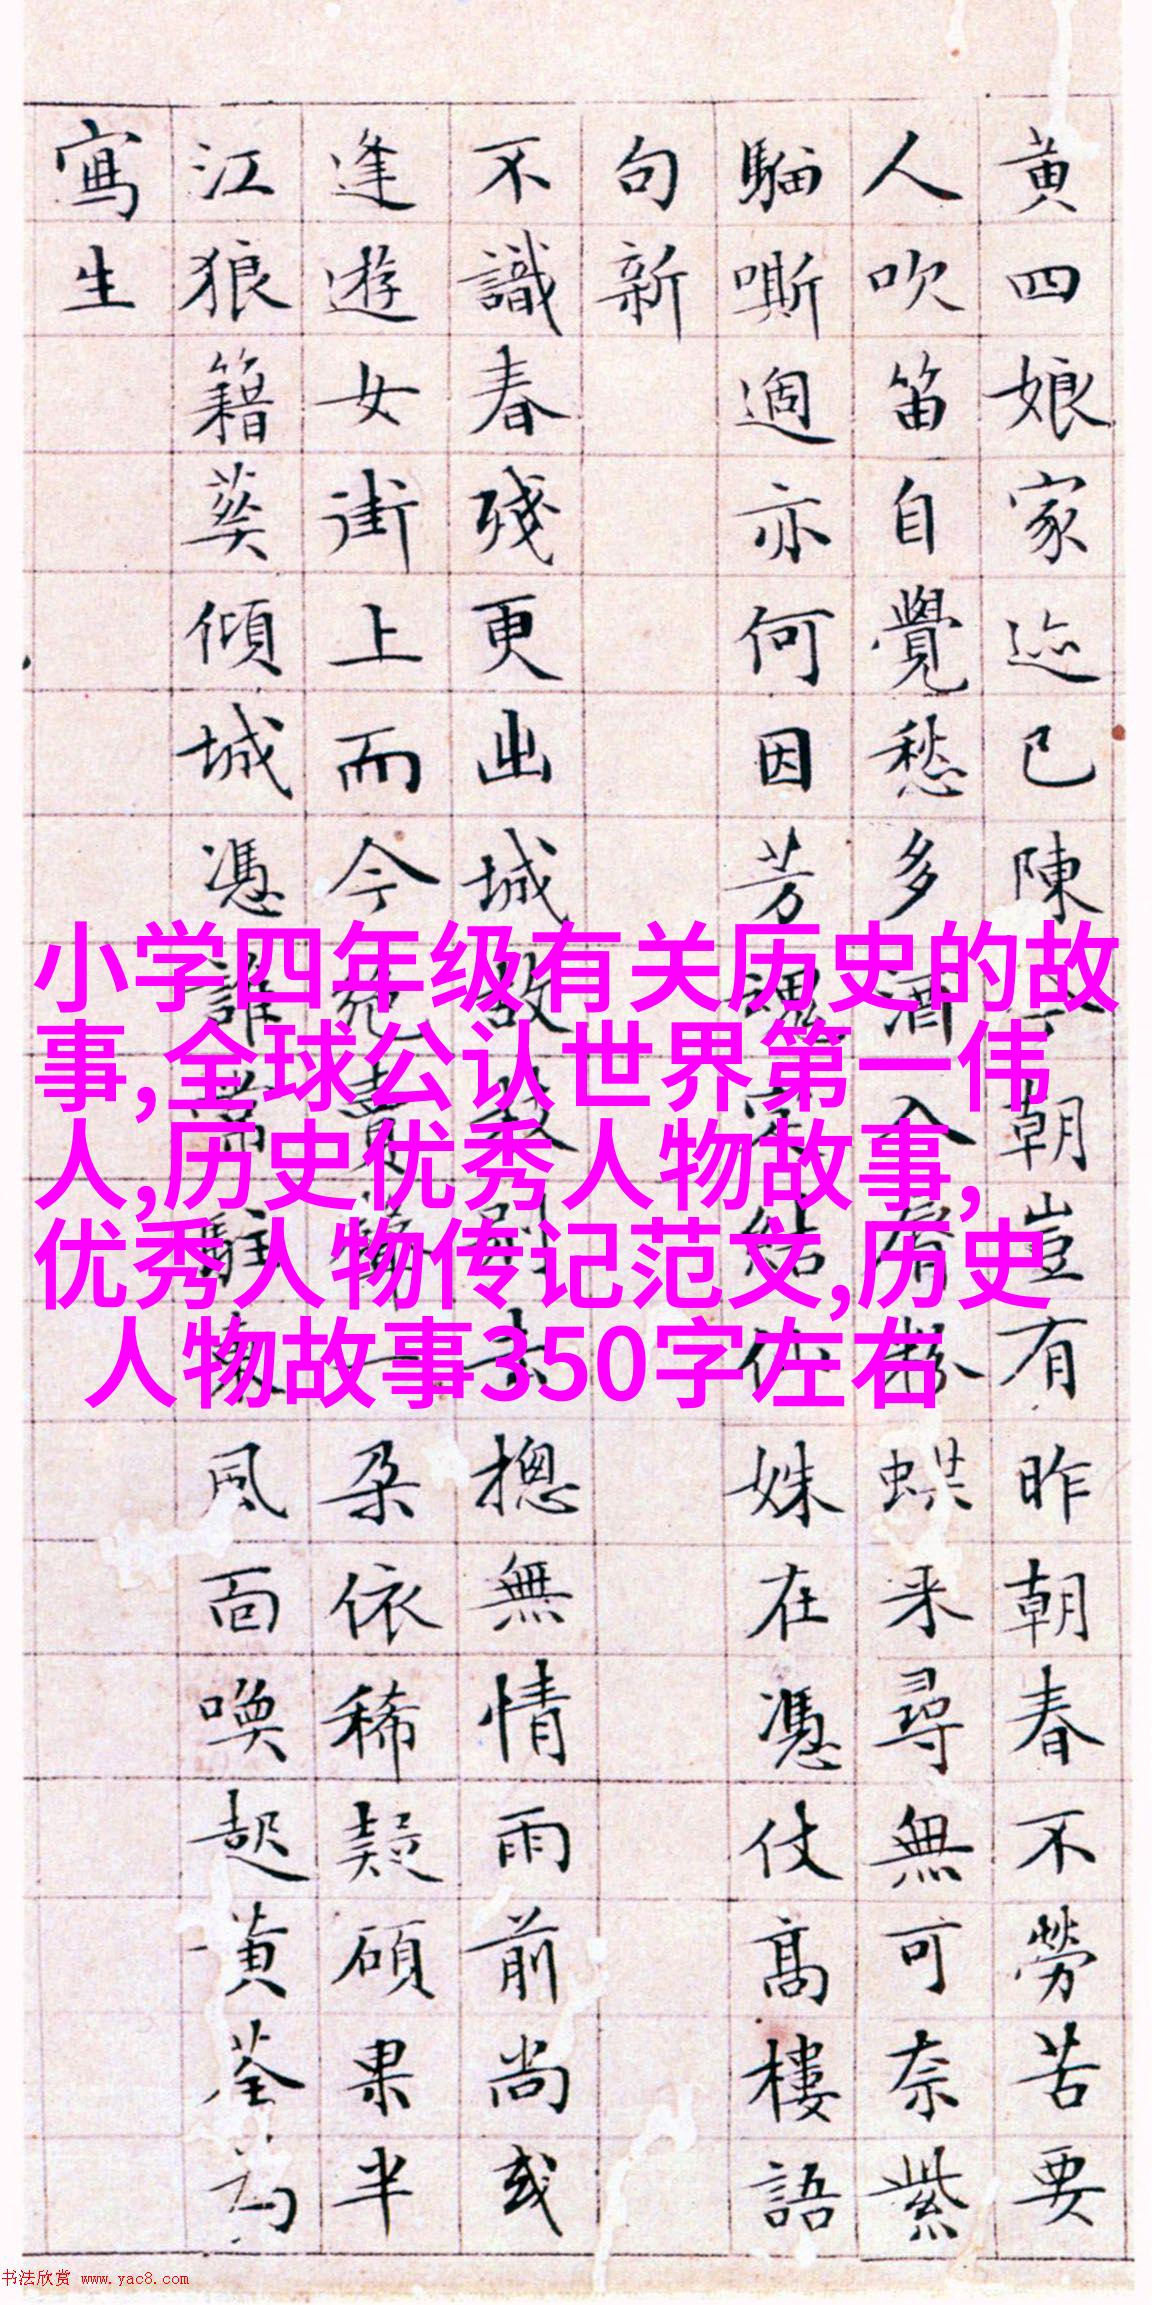 黄四娘家迹已陳朝豈有昨朝春不勞苦要
人吹笛自覺愁多酒入脣粉蝶来尋無可奈紫
騮嘶過亦何因芳魂結仙姝在憑仗高樓語
句新
不識春殘更出城故教別去摠無情雨前尚或
逢遊女街上而今賣一朶依稀疑碩果半
江狼籍葵傾城憑誰常駐東風面喚起黄荃為
寫生
小学四年级有关历史的故
事,全球公认世界第一伟
人,历史优秀人物故事,
优秀人物传记范文,历史
人物故事350字左右
书法欣赏 www.yac8.com